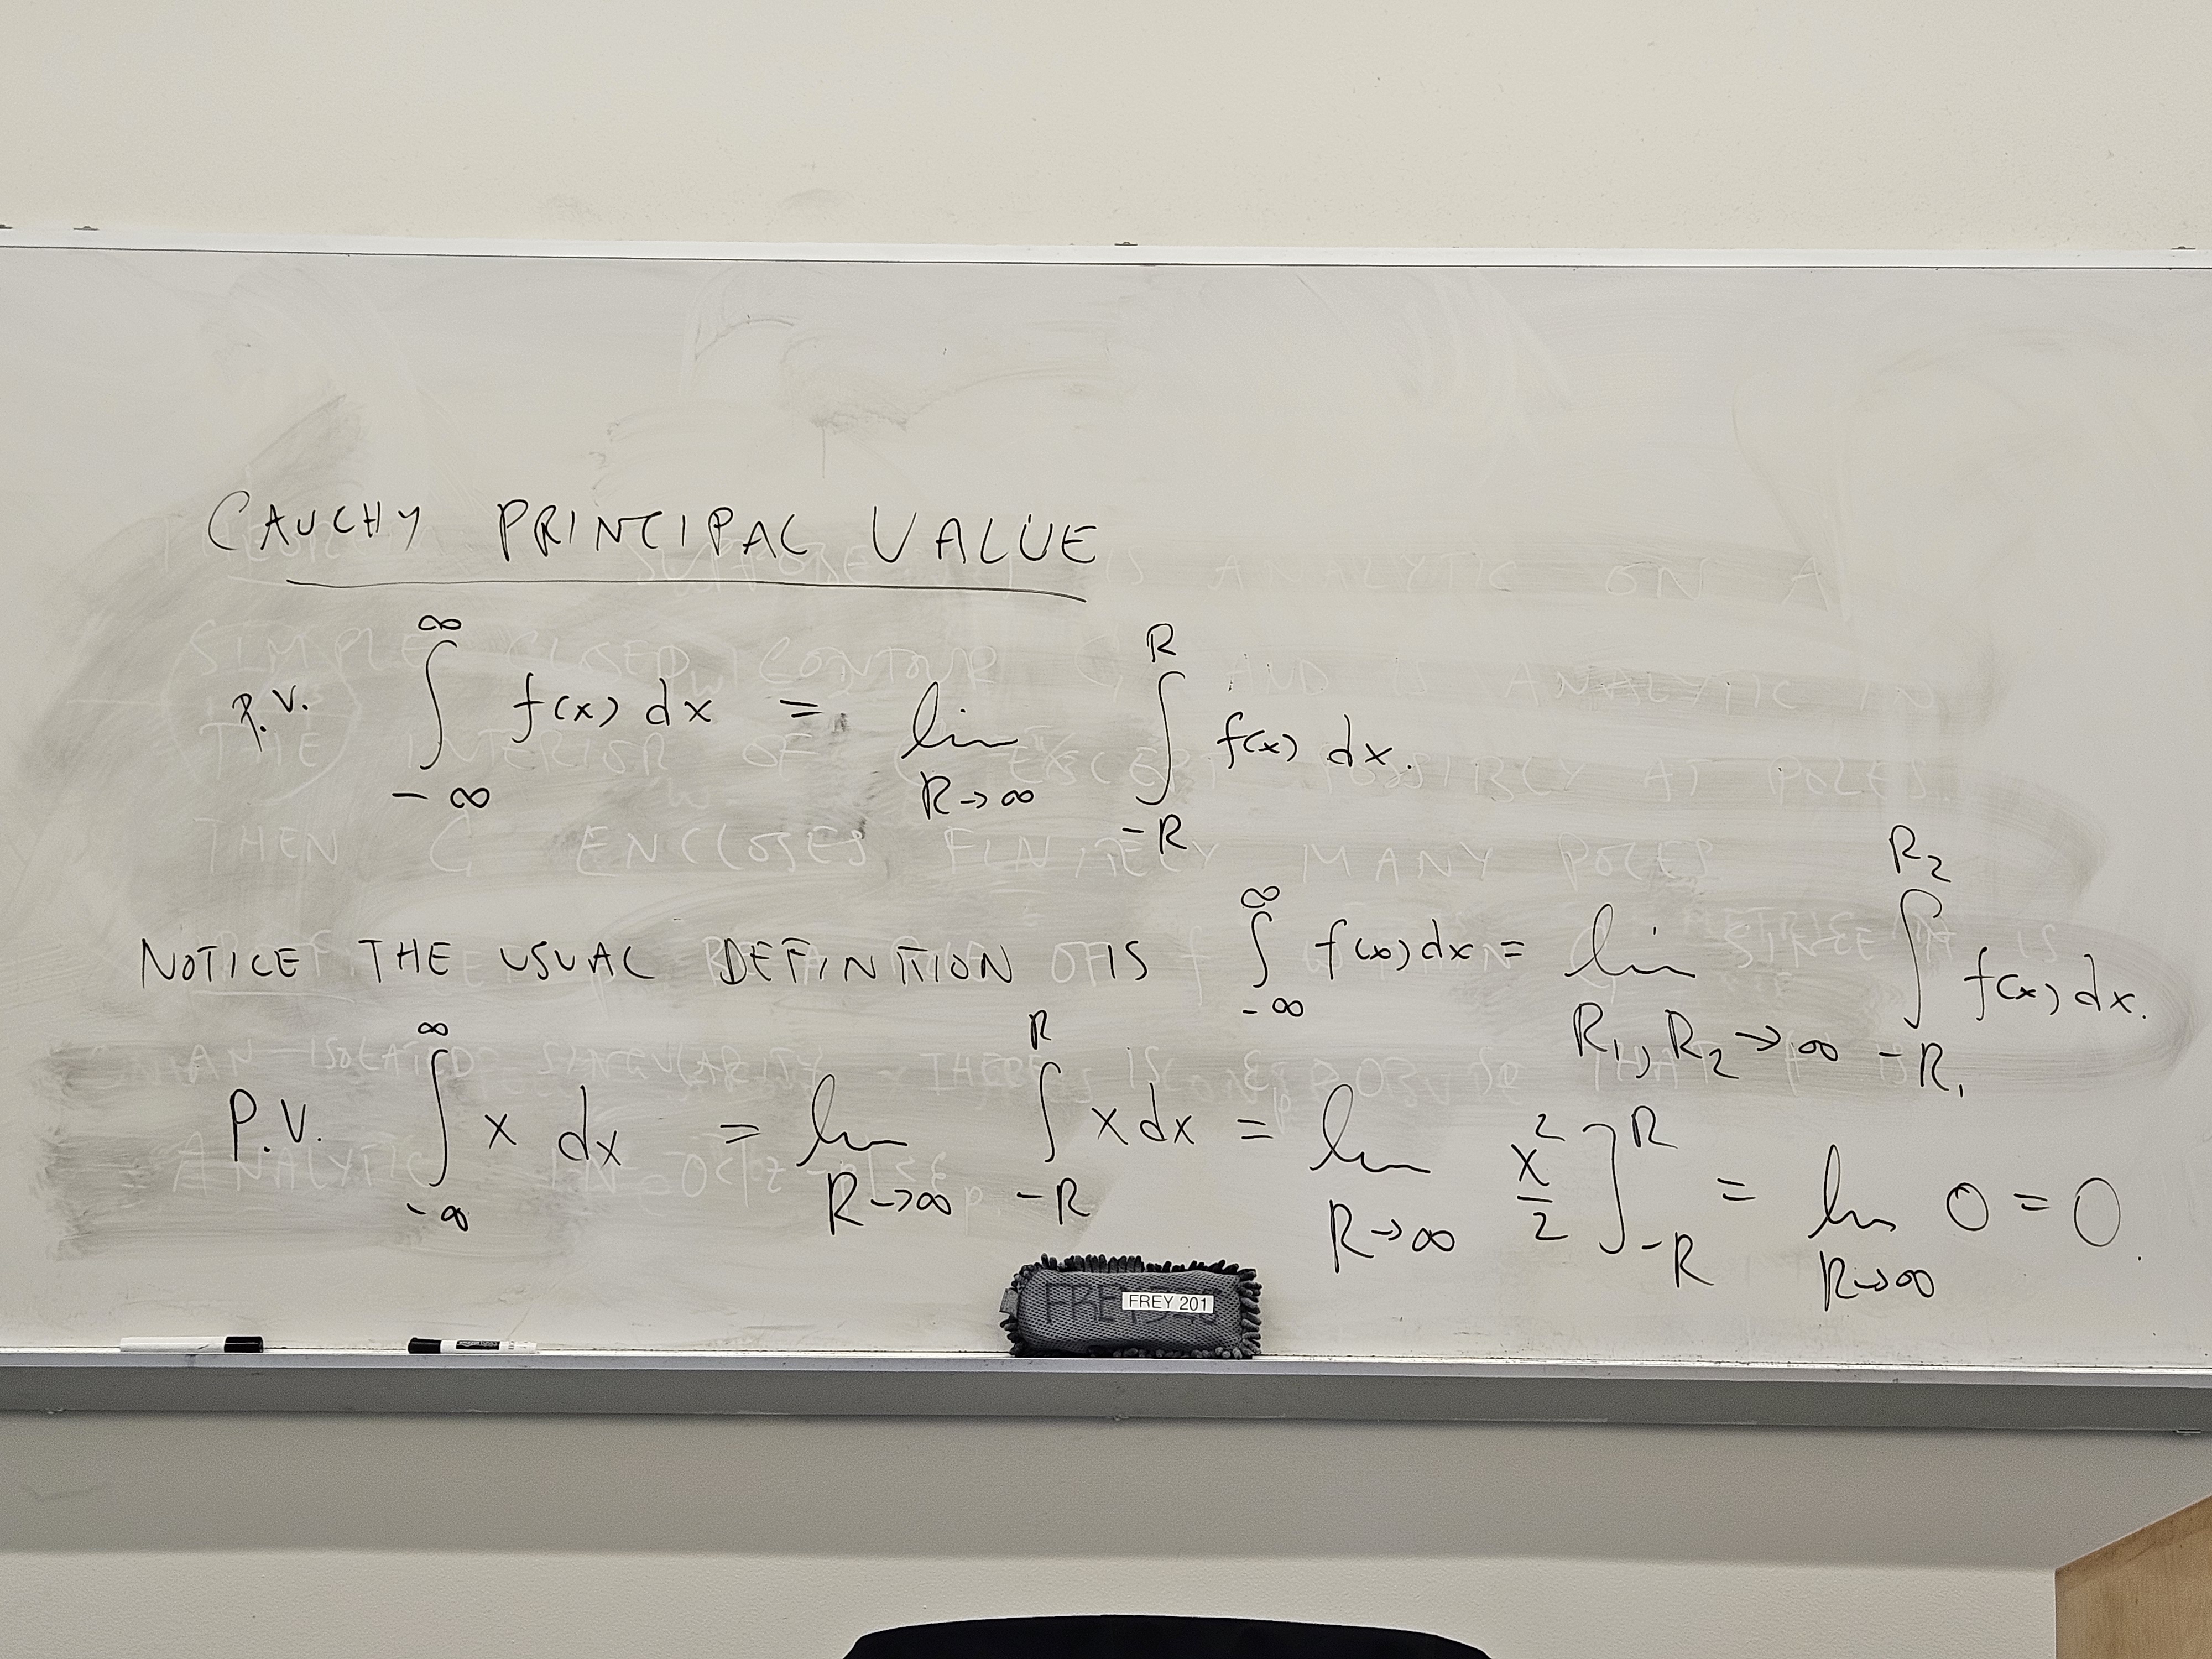 CAUCHY PRINCIPAL VALUE
P.V. ∫_{-∞}^{∞} f(x) dx = lim_{R→∞} ∫_{-R}^{R} f(x) dx.
NOTICE THE USUAL DEFINITION IS ∫_{-∞}^{∞} f(x) dx = lim_{R₁, R₂→∞} ∫_{-R₁}^{R₂} f(x) dx.
P.V. ∫_{-∞}^{∞} x dx = lim_{R→∞} ∫_{-R}^{R} x dx = lim_{R→∞} x²/2 ]_{-R}^{R} = lim_{R→∞} 0 = 0.
FREY 201